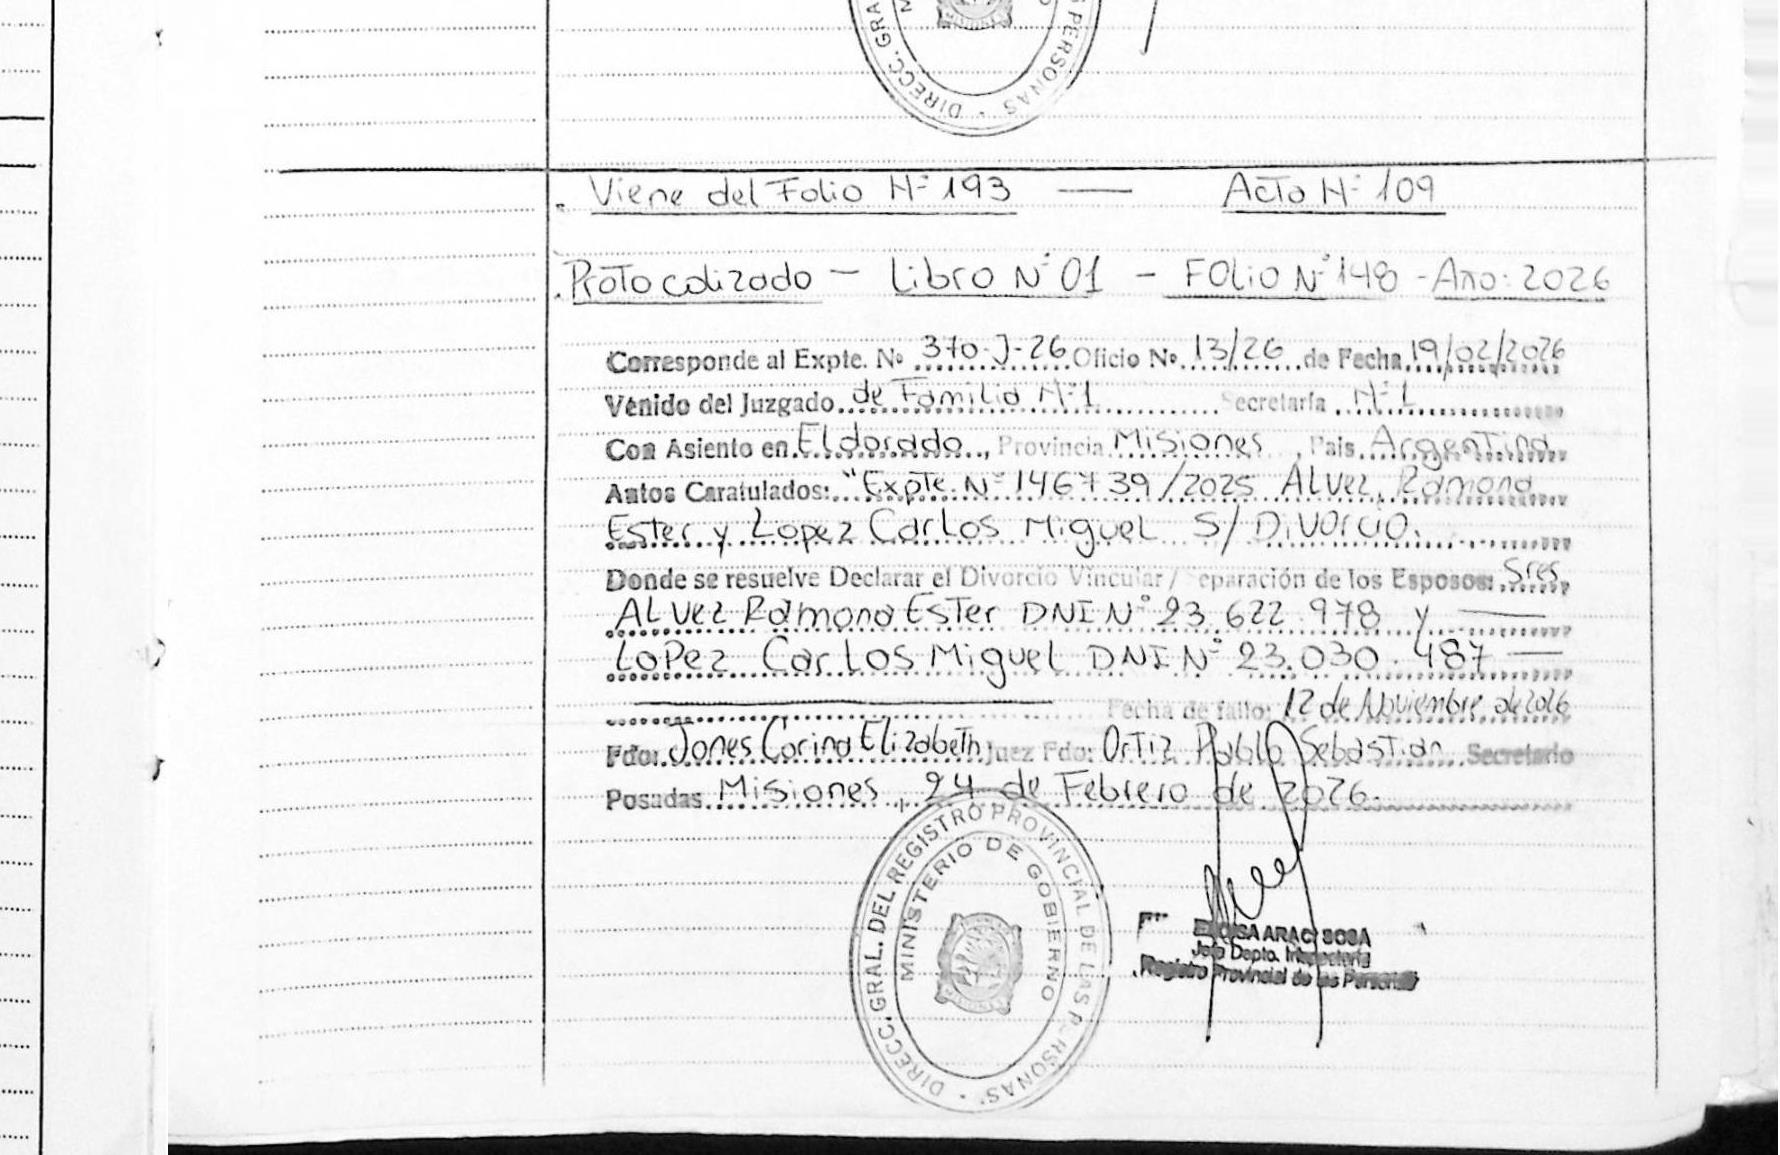 DIRECC. GRA
S PERSONAS
Viene del Folio Nº 193 — Acta Nº 109
Protocolizado — Libro Nº 01 — Folio Nº 148 - Año: 2026
Corresponde al Expte. Nº 370-J-26 Oficio Nº 13/26 de Fecha 19/02/2026
Venido del Juzgado de Familia Nº 1 Secretaría Nº 1
Con Asiento en Eldorado, Provincia Misiones, Pais Argentina
Autos Caratulados: "Expte. Nº 146739/2025 ALvez, Ramona
Ester y Lopez Carlos Miguel S/ Divorcio.
Donde se resuelve Declarar el Divorcio Vincular / Separación de los Esposos: Sres.
ALvez Ramona Ester DNI Nº 23.622.978 y —
Lopez Carlos Miguel DNI Nº 23.030.487 —
Fecha de fallo: 12 de Noviembre de 2026
Fdo: Jones Corina Elizabeth Juez Fdo: Ortiz Pablo Sebastian Secretario
Posadas Misiones, 24 de Febrero de 2026.
DIRECC. GRAL. DEL REGISTRO PROVINCIAL DE LAS PERSONAS
MINISTERIO DE GOBIERNO
SOSA
Jefa Depto. Inspectoría
Registro Provincial de las Personas